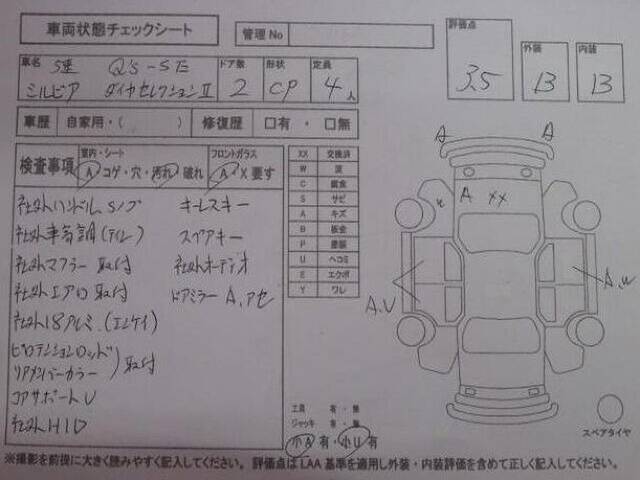 車両状態チェックシート
管理No
評価点 3.5
外装 B
内装 B
車名 5速 Q'S-SE
シルビア ダイヤセレクションⅡ
ドア数 2
形状 CP
定員 4人
車歴 自家用・( ) 修復歴 □有・□無
検査事項
室内・シート
A コゲ・穴・汚れ 破れ
フロントガラス
A X 要す
XX 交換済
W 波
C 腐食
S サビ
A キズ
B 板金
P 塗装
U ヘコミ
E エクボ
Y ワレ
社外ハンドル Sノブ
キーレスキー
社外車高調(テイン)
スペアキー
社外マフラー取付
社外オーディオ
社外エアロ取付
ドアミラー A、アセ
社外18アルミ(エンケイ)
ピロテンションロッド
リアメンバーカラー
取付
コアサポート U
社外HID
A
A
A XX
A、U
A、u
工具 有・無
ジャッキ 有・無
小A有・小U有
スペアタイヤ
※撮影を前提に大きく読みやすく記入してください。 評価点はLAA基準を適用し外装・内装評価を含めて正しく記入してください。